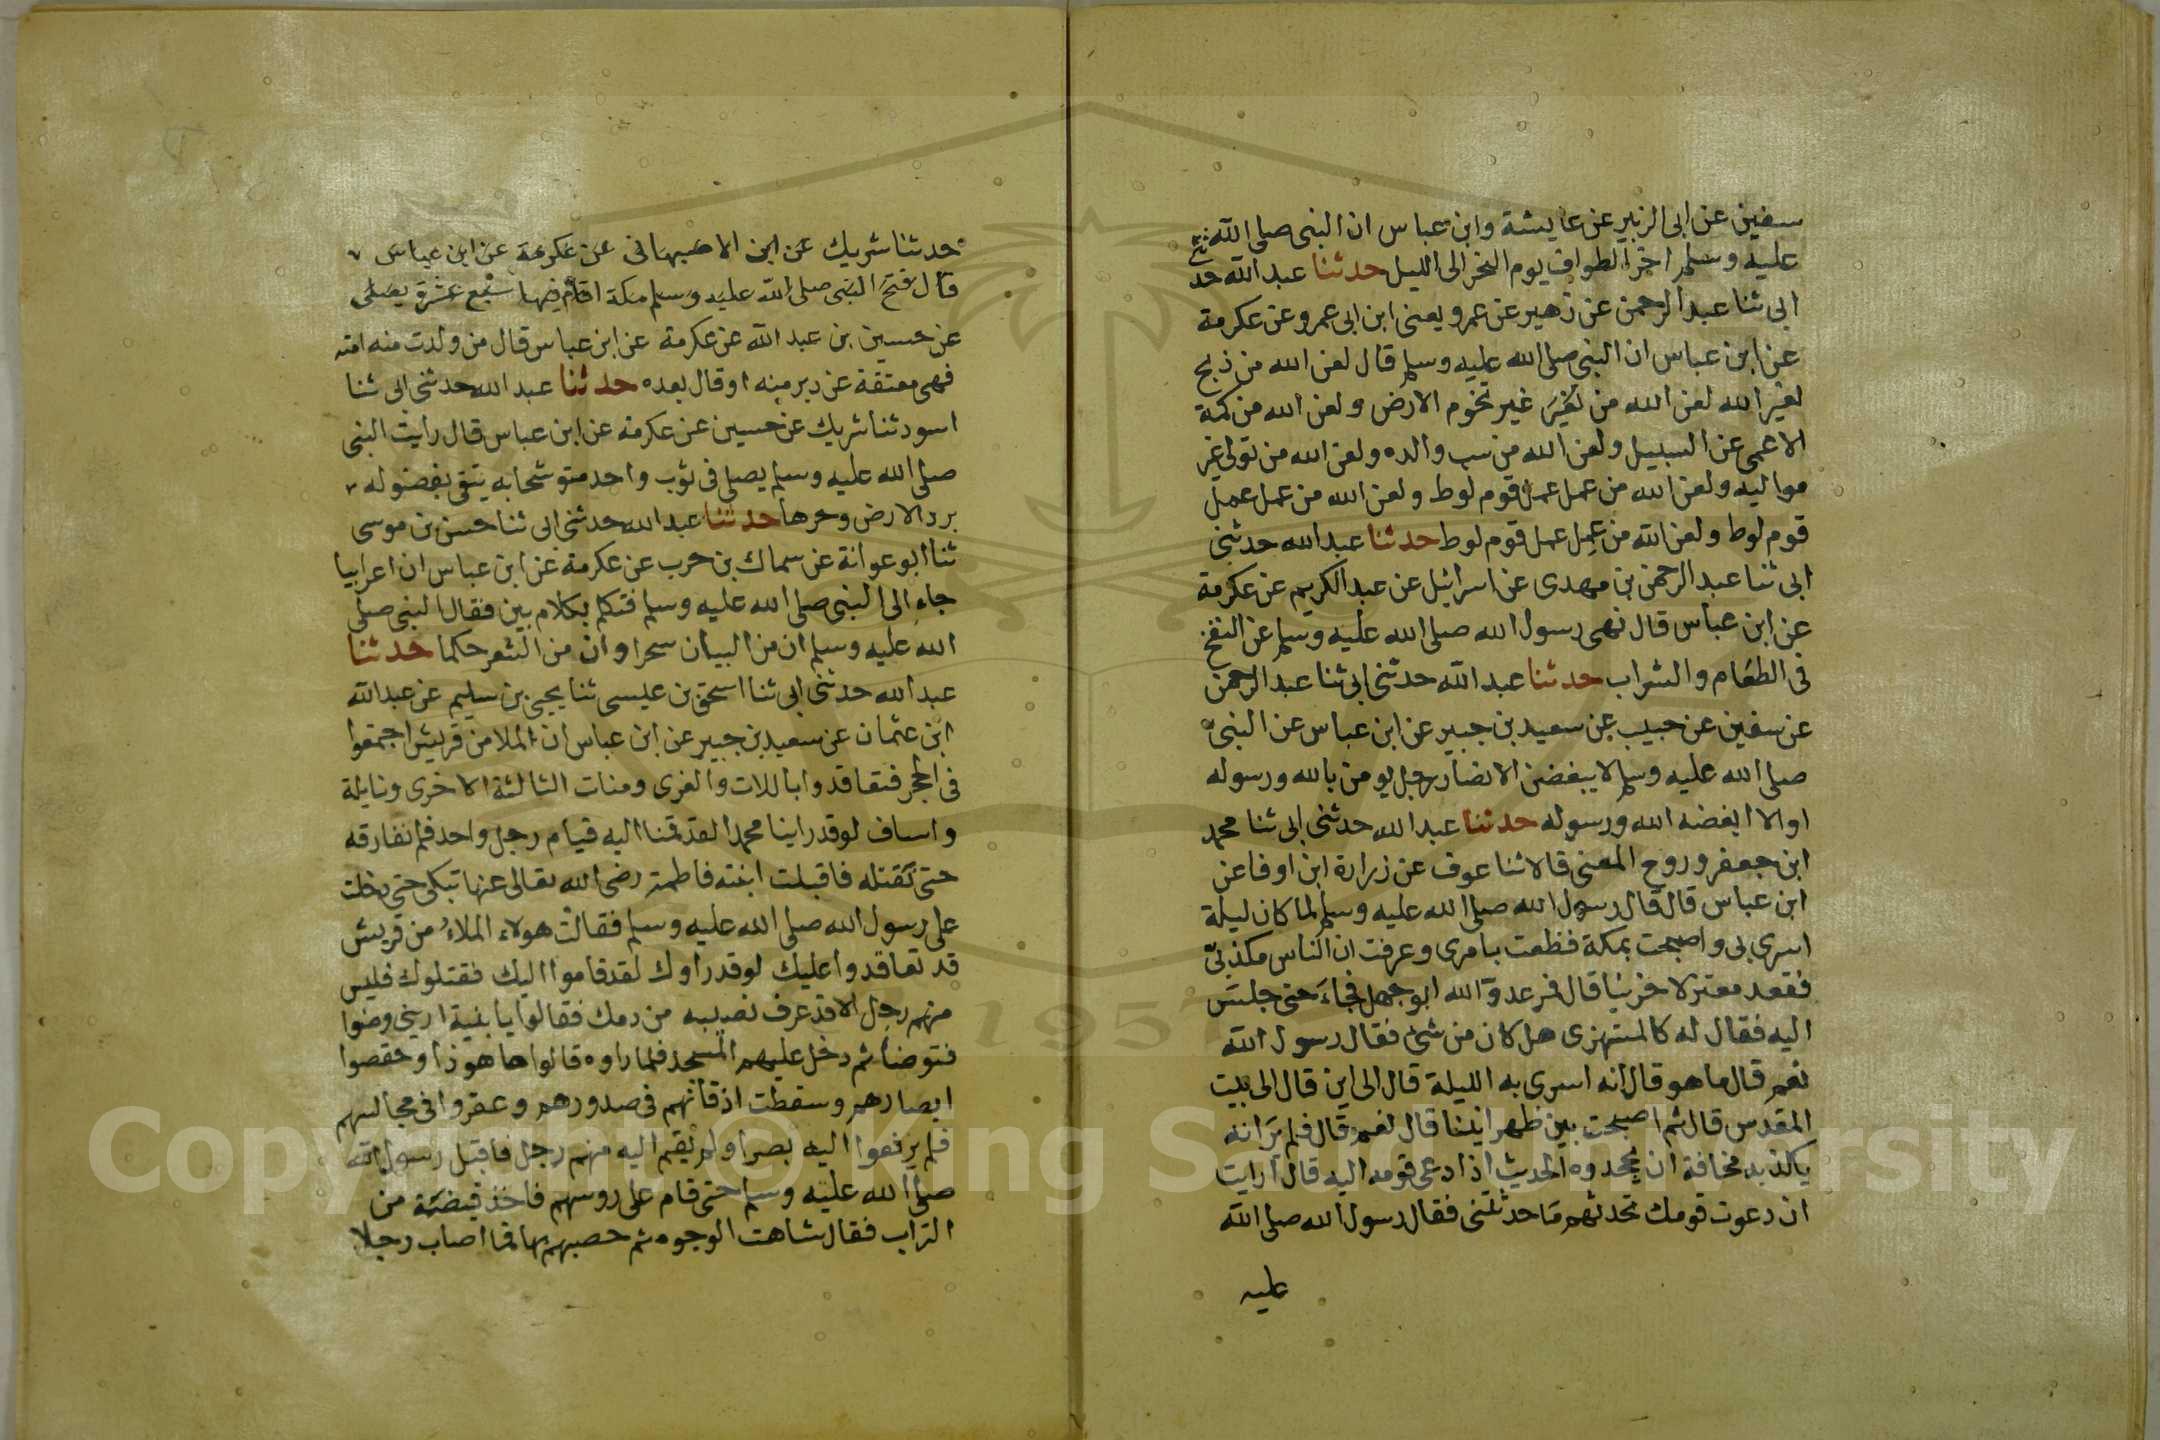 سفين عن ابى الزبير عن عايشة وابن عباس ان النبى صلى الله
عليه وسلم اخر الطواف يوم النحر الى الليل حدثنا عبد الله حد
ثنى
ابى ثنا عبد الرحمن عن زهير عن عمرو يعنى ابن ابى عمرو عن عكرمة
عن ابن عباس ان النبى صلى الله عليه وسلم قال لعن الله من ذبح
لغير الله لعن الله من تغير غير تخوم الارض ولعن الله من كمة
الاعمى عن السبيل ولعن الله من سب والده ولعن الله من تولى غير
مواليه ولعن الله من عمل عمل قوم لوط ولعن الله من عمل عمل
قوم لوط ولعن الله من عمل عمل قوم لوط حدثنا عبد الله حدثنى
ابى ثنا عبد الرحمن بن مهدى عن اسرائيل عن عبد الكريم عن عكرمة
عن ابن عباس قال نهى رسول الله صلى الله عليه وسلم عن النفخ
فى الطعام والشراب حدثنا عبد الله حدثنى ابى ثنا عبد الرحمن
عن سفين عن حبيب عن سعيد بن جبير عن ابن عباس عن النبى
صلى الله عليه وسلم لا يبغض الانصار رجل يومن بالله ورسوله
او الا ابغضه الله ورسوله حدثنا عبد الله حدثنى ابى ثنا محمد
ابن جعفر وروح المعنى قالا ثنا عوف عن زرارة ابن اوفا عن
ابن عباس قال قال رسول الله صلى الله عليه وسلم لما كان ليلة
اسرى بى واصبحت بمكة فظعت بامرى وعرفت ان الناس مكذبى
فقعد معتزلا حزينا قال فمر عدو الله ابو جهل فجاء حتى جلس
اليه فقال له كالمستهزى هل كان من شئ فقال رسول الله
نعم قال ما هو قال انه اسرى به الليلة قال الى اين قال الى بيت
المقدس قال ثم اصبحت بين ظهرانينا قال نعم قال فلم ير انه
يكذبه مخافة ان يجحده الحديث اذا دعى قومه اليه قال ارايت
ان دعوت قومك تحدثهم ما حدثتنى فقال رسول الله صلى الله
عليه
حدثنا شريك عن ابن الاصبهانى عن عكرمة عن ابن عباس
قال فتح النبى صلى الله عليه وسلم مكة اقام فيها سبع عشرة يصلى
عن حسين بن عبد الله عن عكرمة عن ابن عباس قال من ولدت منه امته
فهى معتقة عن دبر منه او قال بعده حدثنا عبد الله حدثنى ابى ثنا
اسود ثنا شريك عن حسين عن عكرمة عن ابن عباس قال رايت النبى
صلى الله عليه وسلم يصلى فى ثوب واحد متوشحا به يتقى بفضوله
برد الارض وحرها حدثنا عبد الله حدثنى ابى ثنا حسن بن موسى
ثنا ابو عوانة عن سماك بن حرب عن عكرمة عن ابن عباس ان اعرابيا
جاء الى النبى صلى الله عليه وسلم فتكلم بكلام بين فقال النبى صلى
الله عليه وسلم ان من البيان سحرا وان من الشعر حكما حدثنا
عبد الله حدثنى ابى ثنا اسحق بن عيسى ثنا يحيى بن سليم عن عبد الله
ابن عثمان عن سعيد بن جبير عن ابن عباس ان الملا من قريش اجتمعوا
فى الحجر فتعاقدوا باللات والعزى ومنات الثالثة الاخرى ونايلة
واساف لو قد راينا محمدا لقد قمنا اليه قيام رجل واحد فلم نفارقه
حتى نقتله فاقبلت ابنته فاطمة رضى الله تعالى عنها تبكى حتى دخلت
على رسول الله صلى الله عليه وسلم فقالت هولاء الملاء من قريش
قد تعاقدوا عليك لو قد راوك لقد قاموا اليك فقتلوك فليس
منهم رجل الا قد عرف نصيبه من دمك فقالوا يا بنية ارينى وضوا
فتوضا ثم دخل عليهم المسجد فلما راوه قالوا ها هو ذا وخفضوا
ابصارهم وسقطت اذقانهم فى صدورهم وعقروا فى مجالسهم
فلم يرفعوا اليه بصرا ولم يقم اليه منهم رجل فاقبل رسول الله
صلى الله عليه وسلم حتى قام على روسهم فاخذ قبضة من
التراب فقال شاهت الوجوه ثم حصبهم بها فما اصاب رجلا
Copyright © King Saud University
1957